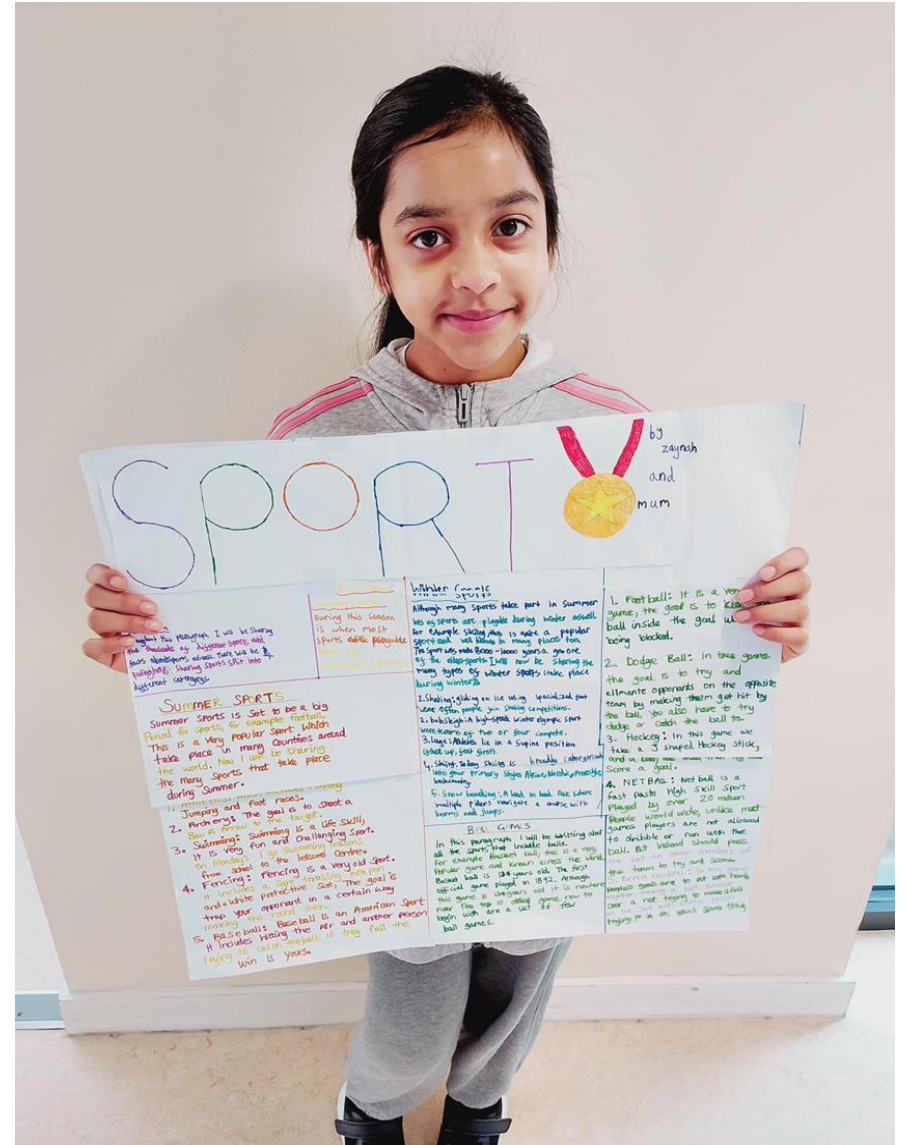 SPORT
by
zaynah
and
mum
this paragraph I will be sharing
thousands of different sports and
sharing sports split into
different categorys.
During this season
is when most
sports are playable
SUMMER SPORTS
Summer sports is Set to be a big
Period for sports, for example football.
This is a very popular sport which
take place in many Countries around
the world. Now I will be sharing
the many sports that take place
during Summer.
Jumping and foot races.
2. Archery: The goal is to shoot a
Bow & Arrow to the target.
3. Swimming: Swimming is a Life Skill,
It is very fun and challenging Sport.
on Mondays I go swimming lessons
from school to the leisure Centre.
4. Fencing: Fencing is a very old sport.
It includes a light thrusting weapon
and a white protective suit, The goal is
trap your opponent in a certain way
making the round over.
5. Baseball: Baseball is an American Sport
It includes hitting the Air and another person
trying to catch the ball, if they fail the
win is yours.
Winter
Although many sports take part in Summer
lots of sports are playable during winter aswell.
For example skiing this is quite a popular
sport and well known in many places too.
of the oldest sports I will now be sharing the
many types of winter sports take place
during winter:
1. Skating: gliding on ice using specialized foot
wear often people join skating competitions.
2. bobsleigh: A high-speed winter olympic sport
were teams of two or four compete.
3. Luge: Athletes lie in a supine position
(face up, feet first).
4. Skiing: Today skiing is broadly categorised
into four primary styles Alpine, Nordic, Freestyle,
5. Snow boarding: A head to head race where
multiple riders navigate a course with
berms and jumps.
BALL GAMES
In this paragraph I will be writing about
all the sports that include balls.
For example Basket ball, this is a very
Popular game and known across the world.
Basket ball is years old. The first
official game played in 1892. Although
this game is years old it is nowhere
near The top 10 oldest game, now to
begin with are a list of few
ball games.
1. Football: It is a very
game, the goal is to kick
ball inside the goal
being blocked.
2. Dodge Ball: In this game
the goal is to try and
elimante opponants on the opposite
team by making them get hit by
the ball, you also have to try
dodge or catch the ball to.
3. Hockey: In this game we
take a J shaped Hockey stick,
Score a goal.
4. NETBALL: Net ball is a
fast paste high skill sport
Played by over 20 million
People world wide, unlike most
games players are not allowed
to dribble or run with the
ball. But instead should pass
the ball to other members of
the team to try and score.